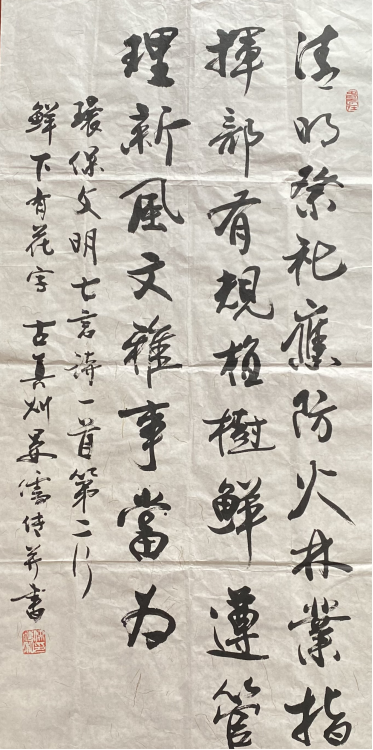 清明祭祀應防火林業指
揮部有規植樹鮮遵管
理新風文雅事當為
環保文明七言詩一首第二行
鮮下有花字 古真州儒传并書